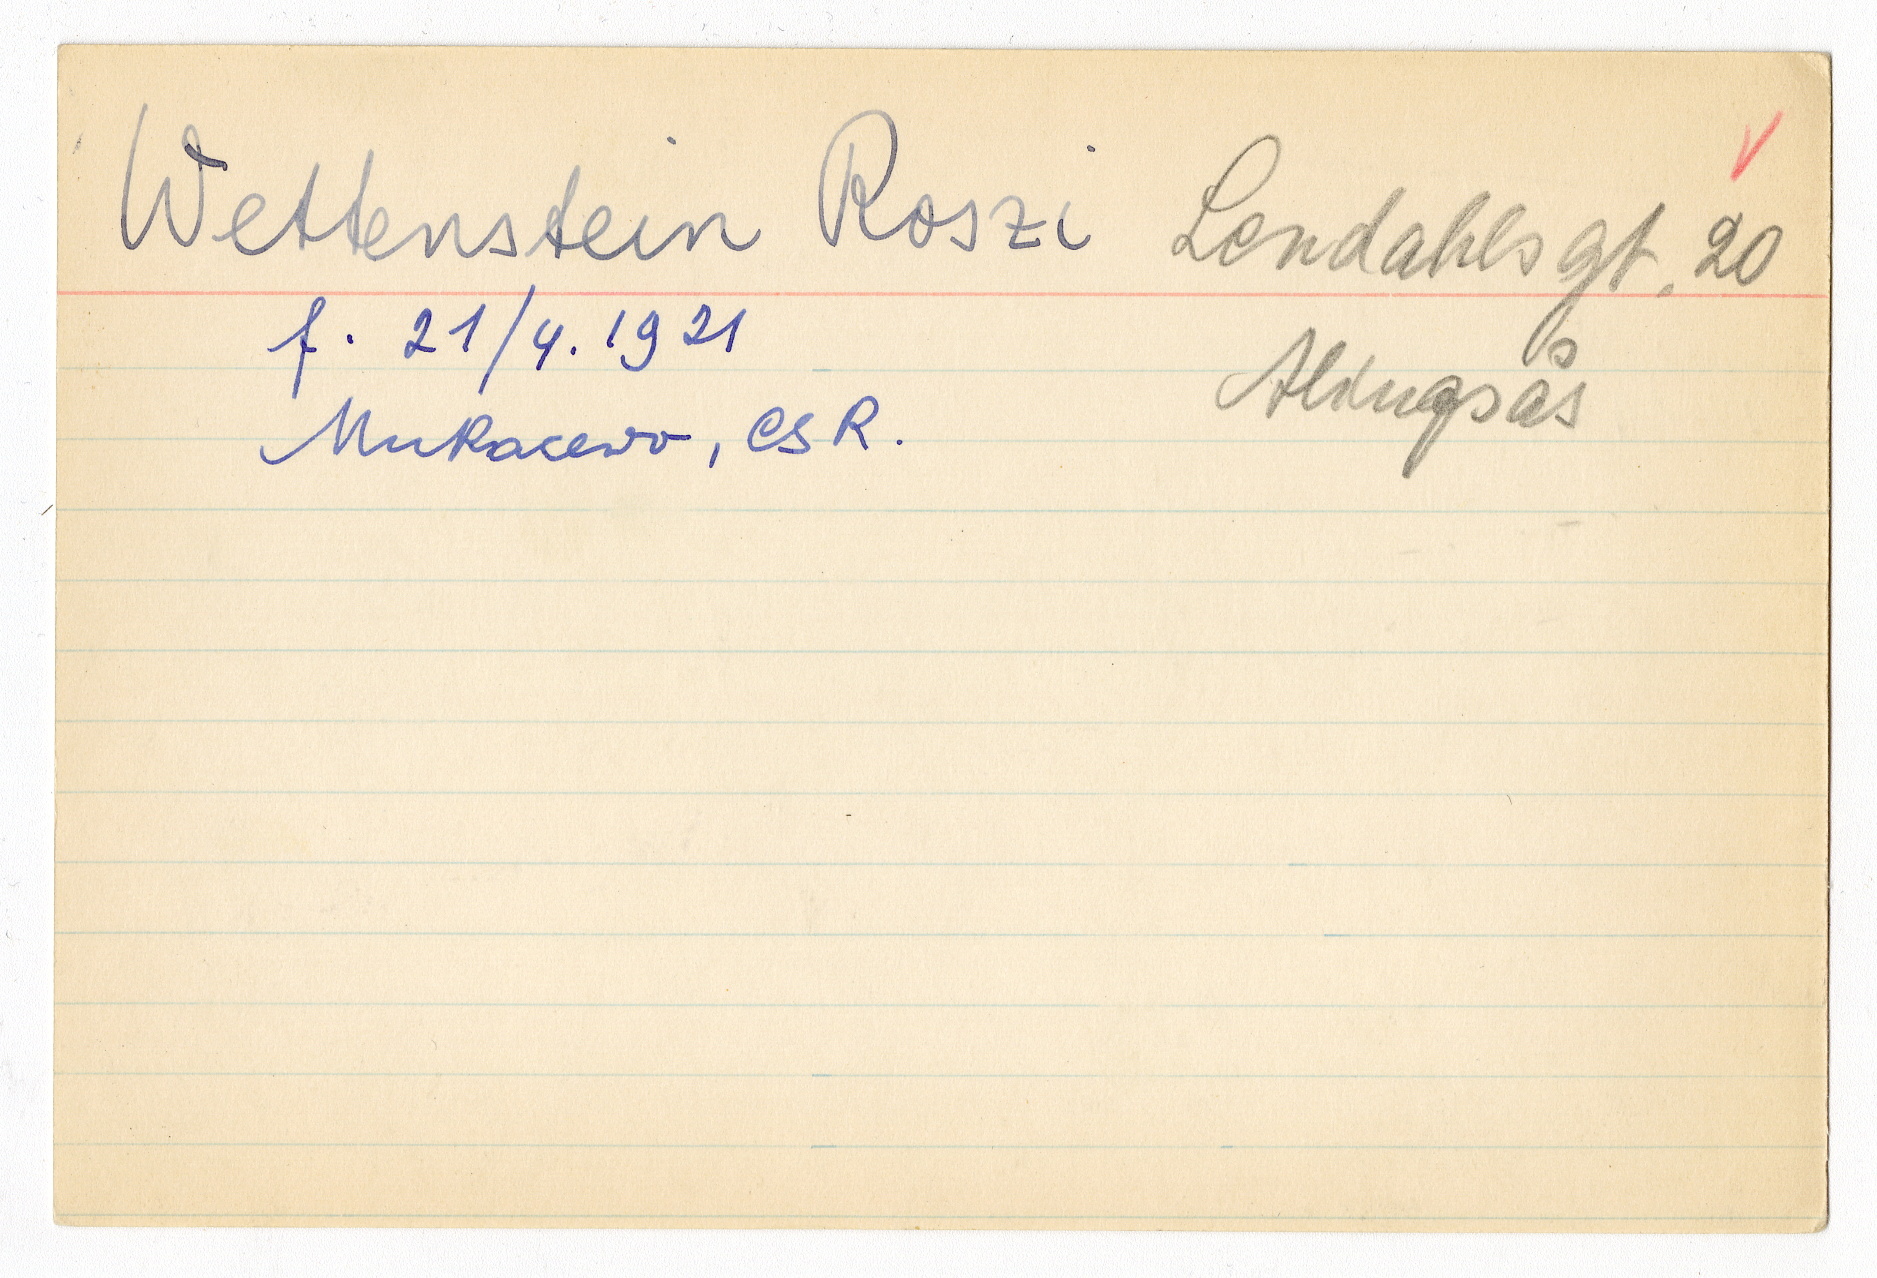 Wettenstein Roszi Lendahlsgt. 20
f. 21/4. 1921 Alingsås
Mukacewo, CSR.